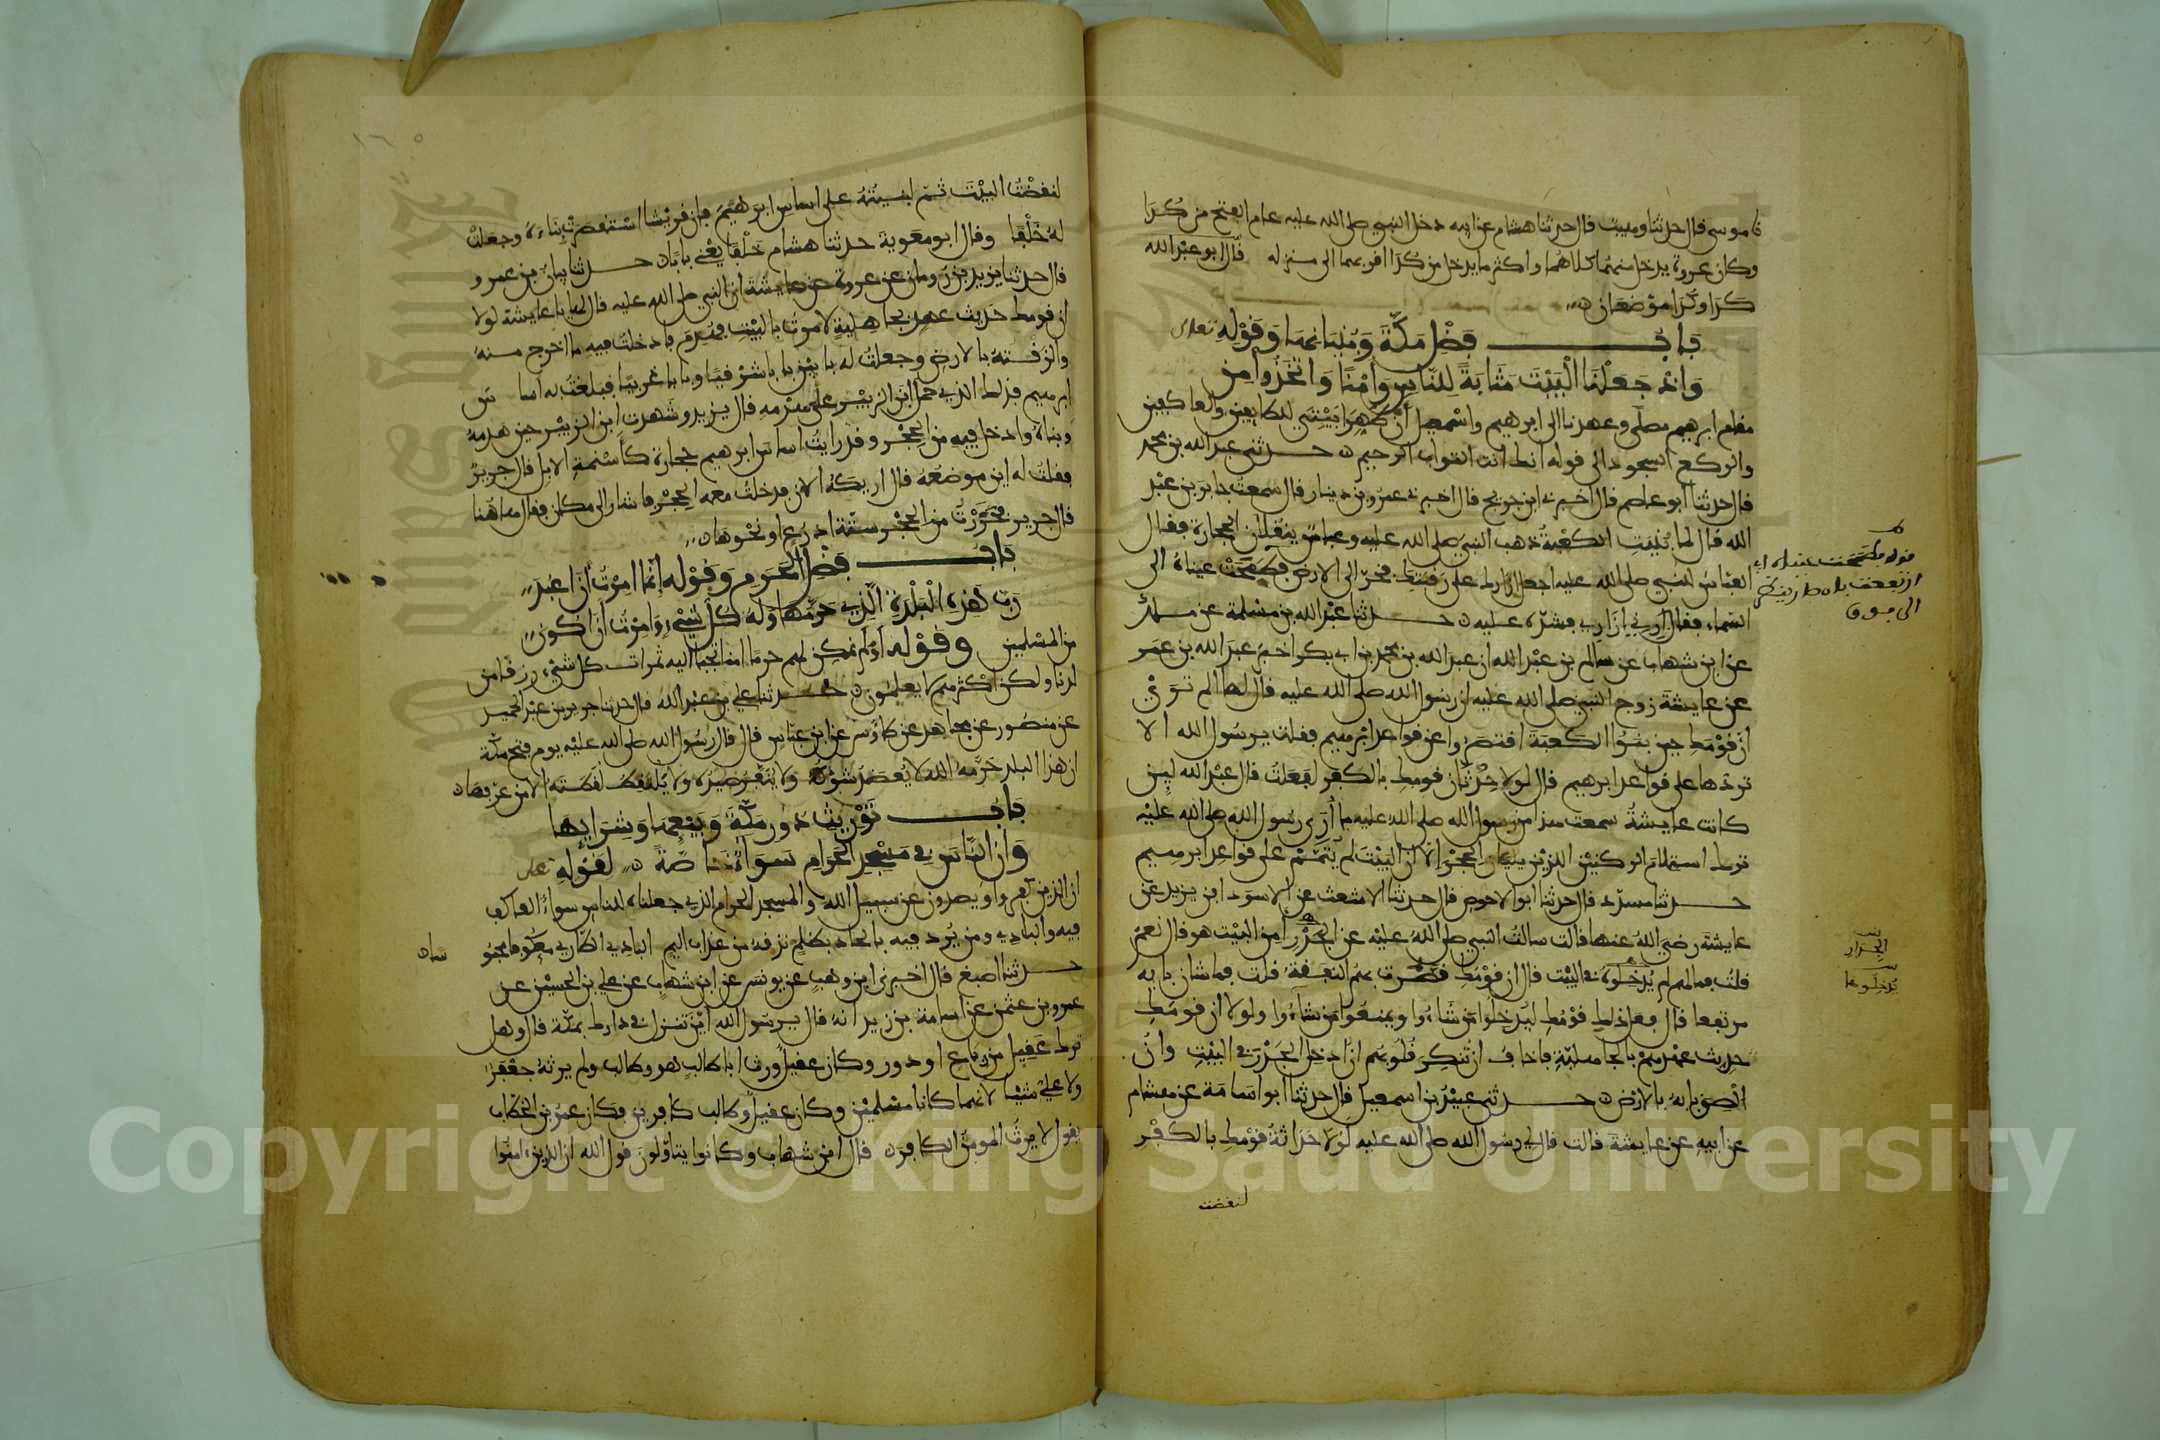 نا موسى قال حدثنا وهيب قال حدثنا هشام عن ابيه دخل النبي صلى الله عليه عام الفتح من كدا
وكان عروة يدخل منهما كلاهما واكثر ما يدخل من كدا اقربهما الى منزله قال ابو عبد الله
كدا وكدا موضعان
باب فضل مكة وبنيانها وقوله تعالى
واذ جعلنا البيت مثابة للناس وامنا واتخذوا من
مقام ابرهيم مصلى وعهدنا الى ابرهيم واسمعيل أن طهرا بيتي للطايفين والعاكفين
والركع السجود الى قوله انك انت التواب الرحيم حدثني عبد الله بن محمد
قال حدثنا ابو عاصم قال اخبرني ابن جريج قال اخبرني عمرو بن دينار قال سمعت جابر بن عبد
الله قال لما بنيت الكعبة ذهب النبي صلى الله عليه وعباس ينقلان الحجارة فقال
العباس للنبي صلى الله عليه اجعل ازارك على رقبتك فخر الى الارض فطمحت عيناه الى
السماء فقال أرني ازاري فشده عليه حدثنا عبد الله بن مسلمة عن ملك
عن ابن شهاب عن سالم بن عبد الله ان عبد الله بن محمد بن ابي بكر اخبر عبد الله بن عمر
عن عايشة زوج النبي صلى الله عليه ان رسول الله صلى الله عليه قال لها الم تري
أن قومك حين بنوا الكعبة اقتصروا عن قواعد ابرهيم فقلت يرسول الله الا
تردها على قواعد ابرهيم قال لولا حدثان قومك بالكفر لفعلت قال عبد الله ليِن
كانت عايشة سمعت هذا من رسول الله صلى الله عليه ما أرى رسول الله صلى الله عليه
ترك استلام الركنين الذين يليان الحجر الا ان البيت لم يتمم على قواعد ابرهيم
حدثنا مسدد قال حدثنا ابو الاحوص قال حدثنا الاشعث عن الاسود ابن يزيد عن
عايشة رضي الله عنها قالت سالت النبي صلى الله عليه عن الجدر أمن البيت هو قال نعم
قلت فما لهم لم يدخلوه في البيت قال ان قومك قصرت بهم النفقة قلت فما شان بابه
مرتفعا قال فعل ذلك قومك ليدخلوا من شاءوا ويمنعوا من شاءوا ولولا ان قومك
حديث عهدهم بالجاهلية فاخاف ان تنكر قلوبهم ان ادخل الجدر في البيت وان
الصق بابه بالارض حدثني عبيد بن اسمعيل قال حدثنا ابو اسامة عن هشام
عن ابيه عن عايشة قالت قال لي رسول الله صلى الله عليه لولا حداثة قومك بالكفر
لنقضت
الجدار
لنقضت البيت ثم لبنيته على اساس ابرهيم فإن قريشا استقصرت بناءه وجعلت
له خَلْفا وقال ابو معوية حدثنا هشام خَلْفًا يعني بابا حدثنا بيان بن عمرو
قال حدثنا يزيد بن رومان عن عروة عن عايشة ان النبي صلى الله عليه قال لها يا عايشة لولا
ان قومك حديث عهد بجاهلية لامرت بالبيت فهدم فادخلت فيه ما اخرج منه
والزقته بالارض وجعلت له بابين بابا شرقيا وبابا غربيا فبلغت به اساس
ابرهيم فذلك الذي حمل ابن الزبير على هدمه قال يزيد وشهدت ابن الزبير حين هدمه
وبناه وادخل فيه من الحجر وقد رايت اساس ابرهيم حجارة كأسنمة الابل قال جرير
فقلت له اين موضعه قال اريكه الان فدخلت معه الحجر فاشار الى مكان فقال هاهنا
قال جرير فحزرت من الحجر ستة اذرع او نحوها
باب فضل الحرم وقوله إنما امرت أن اعبد
رب هذه البلدة الذي حرمها وله كل شيء وامرت ان اكون
من المسلمين وقوله اولم نمكن لهم حرما امنا تجبا اليه ثمرات كل شيء رزقا من
لدنا ولكن اكثرهم لا يعلمون حدثنا علي بن عبد الله قال حدثنا جرير بن عبد الحميد
عن منصور عن مجاهد عن طاوس عن ابن عباس قال قال رسول الله صلى الله عليه يوم فتح مكة
ان هذا البلد حرمه الله لا يعضد شوكه ولا ينفر صيده ولا يلتقط لقطته الا من عرفها
باب توريث دور مكة وبيعها وشرايها
وأن الناس في مسجد الحرام سواء خاصة لقوله تعلى
ان الذين كفروا ويصدون عن سبيل الله والمسجد الحرام الذي جعلناه للناس سواء العاكف
فيه والبادي ومن يرد فيه بالحاد بظلم نذقه من عذاب اليم البادي الطاري معكوفا محبوسا
حدثنا اصبغ قال اخبرني ابن وهب عن يونس عن ابن شهاب عن علي بن الحسين عن
عمرو بن عثمن عن اسامة بن زيد انه قال يرسول الله اين تنزل في دارك بمكة قال وهل
ترك عقيل من رباع او دور وكان عقيل ورث ابا طالب هو وطالب ولم يرثه جعفر
ولا علي شيئا لانهما كانا مسلمين وكان عقيل وطالب كافرين فكان عمر بن الخطاب
يقول لا يرث المومن الكافر قال ابن شهاب وكانوا يتاولون قول الله ان الذين امنوا
Copyright © King Saud University